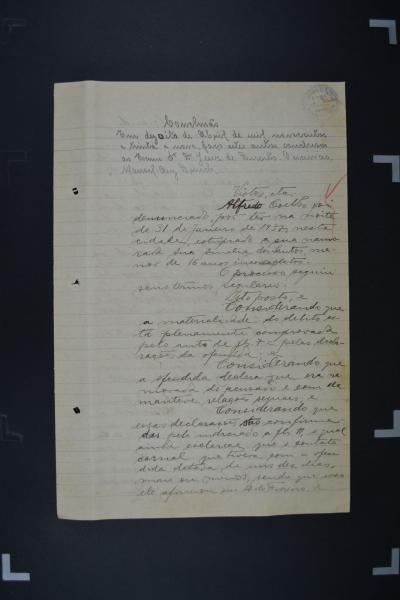 Conclusão
Em dezoito de Abril de mil novecentos
e trinta e nove, faço estes autos conclusos
ao Exmo Sr. Dr. Juiz de Direito. O escrivão,
Manoel
Vistos, etc.
Alfredo Coelho foi
denunciado, por ter na noite
de 31 de janeiro de 1938, nesta
cidade, estuprado a sua namo
rada dos Santos, me-
nor de 16 anos incompletos.
O processo seguiu
seus termos regulares.
Isto posto, e
Considerando que
a materialidade do delito es-
tá plenamente comprovada
pelo auto de fls. e pelas decla-
rações da ofendida; e
Considerando que
a ofendida declara que era na
morada do acusado e com ele
manteve relações sexuais; e
Considerando que
essas declarações são confirma
das pelo indiciado a fls. o qual
ainda esclarece que o contato
carnal que tivera com a ofen
dida datava de uns dez dias,
mais ou menos, sendo que isso
ele afirmou em 4 de Fevereiro, e